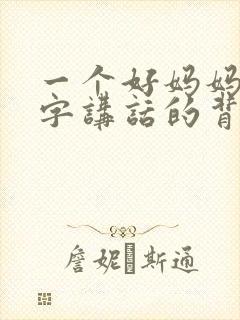 一个好妈妈
字講話的背
詹妮·斯通